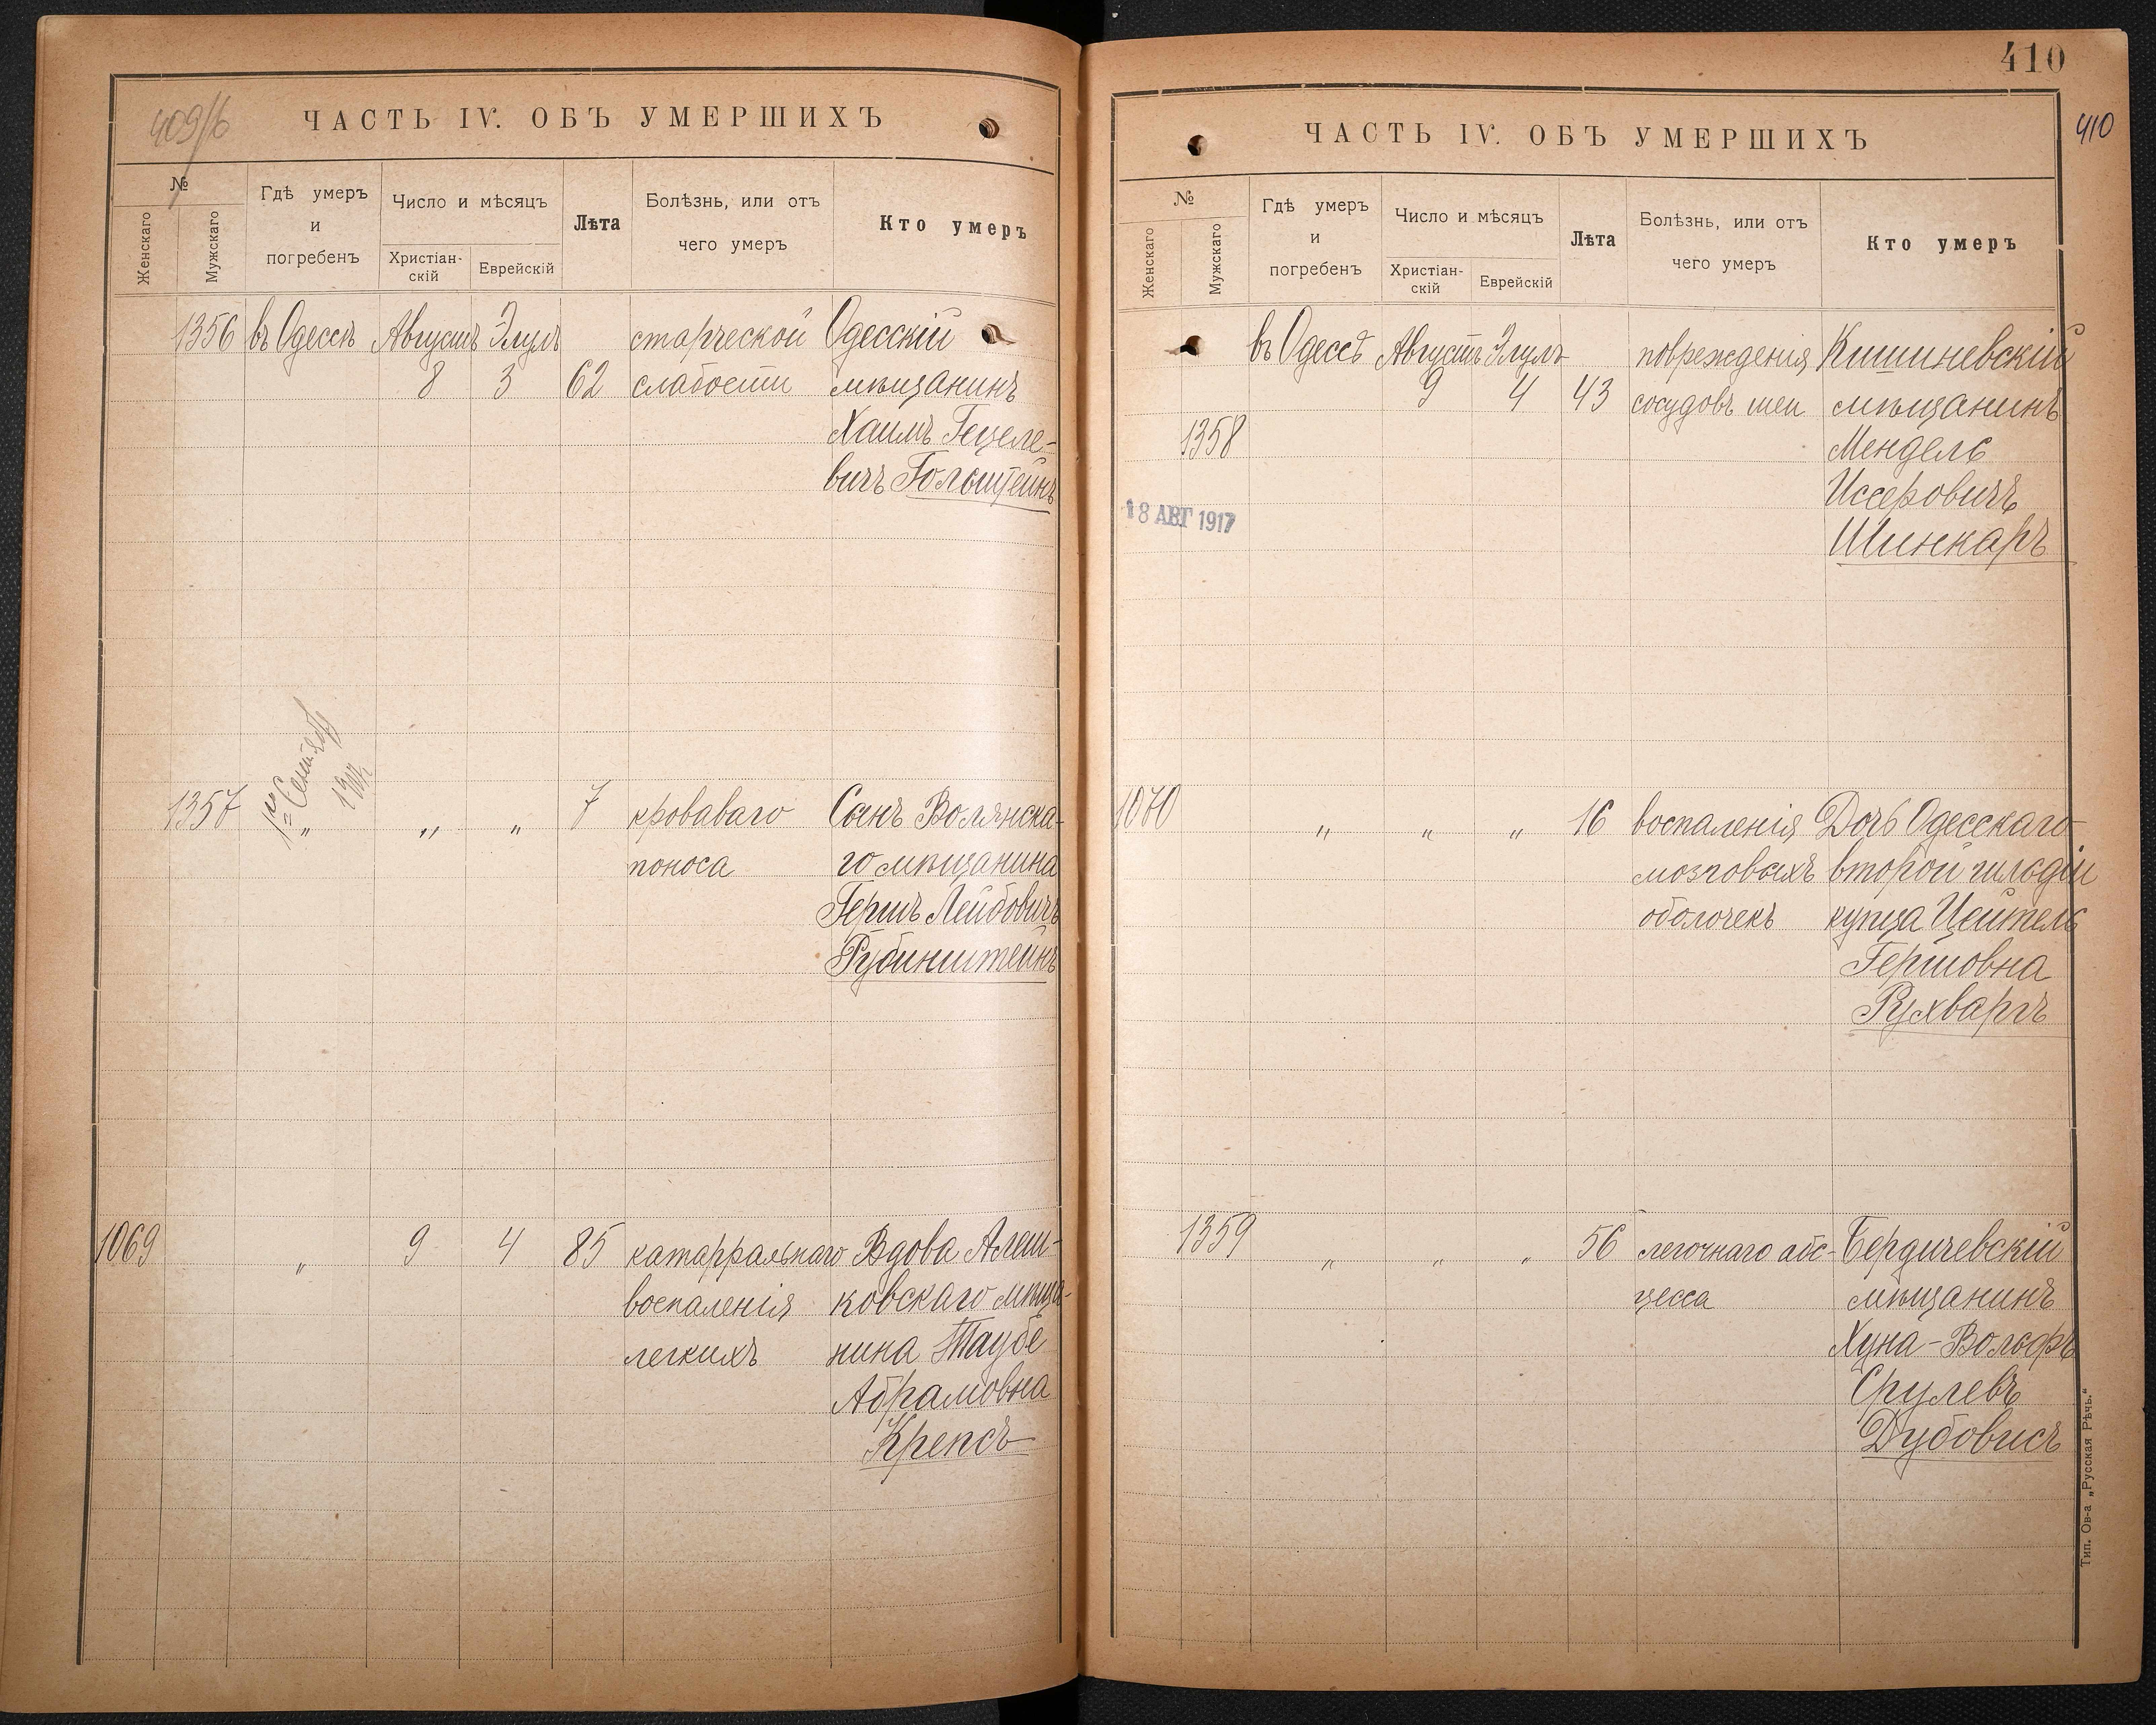 409/б
ЧАСТЬ IV. ОБЪ УМЕРШИХЪ
№
Женскаго
Мужскаго
Гдѣ умеръ
и
погребенъ
Число и мѣсяцъ
Христіан-
скій
Еврейскій
Лѣта
Болѣзнь, или отъ
чего умеръ
Кто умеръ
1356 въ Одессѣ Августъ Элулъ старческой Одесскій
8 3 62 слабости мѣщанинъ
Хаимъ Гецеле-
вичъ Гольштейнъ
1го Сентября
1357 „ „ „ 7 кроваваго Сынъ Волянска-
поноса го мѣщанина
Гершъ Лейбовичъ
Рубинштейнъ
1069 „ 9 4 85 катарральнаго Вдова Алеш-
воспаленія ковскаго мѣща-
легкихъ нина Таубе
Абрамовна
Крепсъ
410
410
ЧАСТЬ IV. ОБЪ УМЕРШИХЪ
№
Женскаго
Мужскаго
Гдѣ умеръ
и
погребенъ
Число и мѣсяцъ
Христіан-
скій
Еврейскій
Лѣта
Болѣзнь, или отъ
чего умеръ
Кто умеръ
въ Одессѣ Августъ Элулъ повреждения Кишиневскій
9 4 43 сосудовъ шеи мѣщанинъ
1358 Мендель
Иссеровичъ
18 АВГ 1917
Шинкаръ
1070 „ „ „ 16 воспаленія Дочь Одесскаго
мозговыхъ второй гильдіи
оболочекъ купца Цейтель
Гершовна
Рухваргъ
1359 „ „ „ 56 легочнаго абс- Бердичевскій
цесса мѣщанинъ
Хуна-Вольфъ
Срулевъ
Дубовисъ
Тип. Ов-а „Русская Рѣчь.“